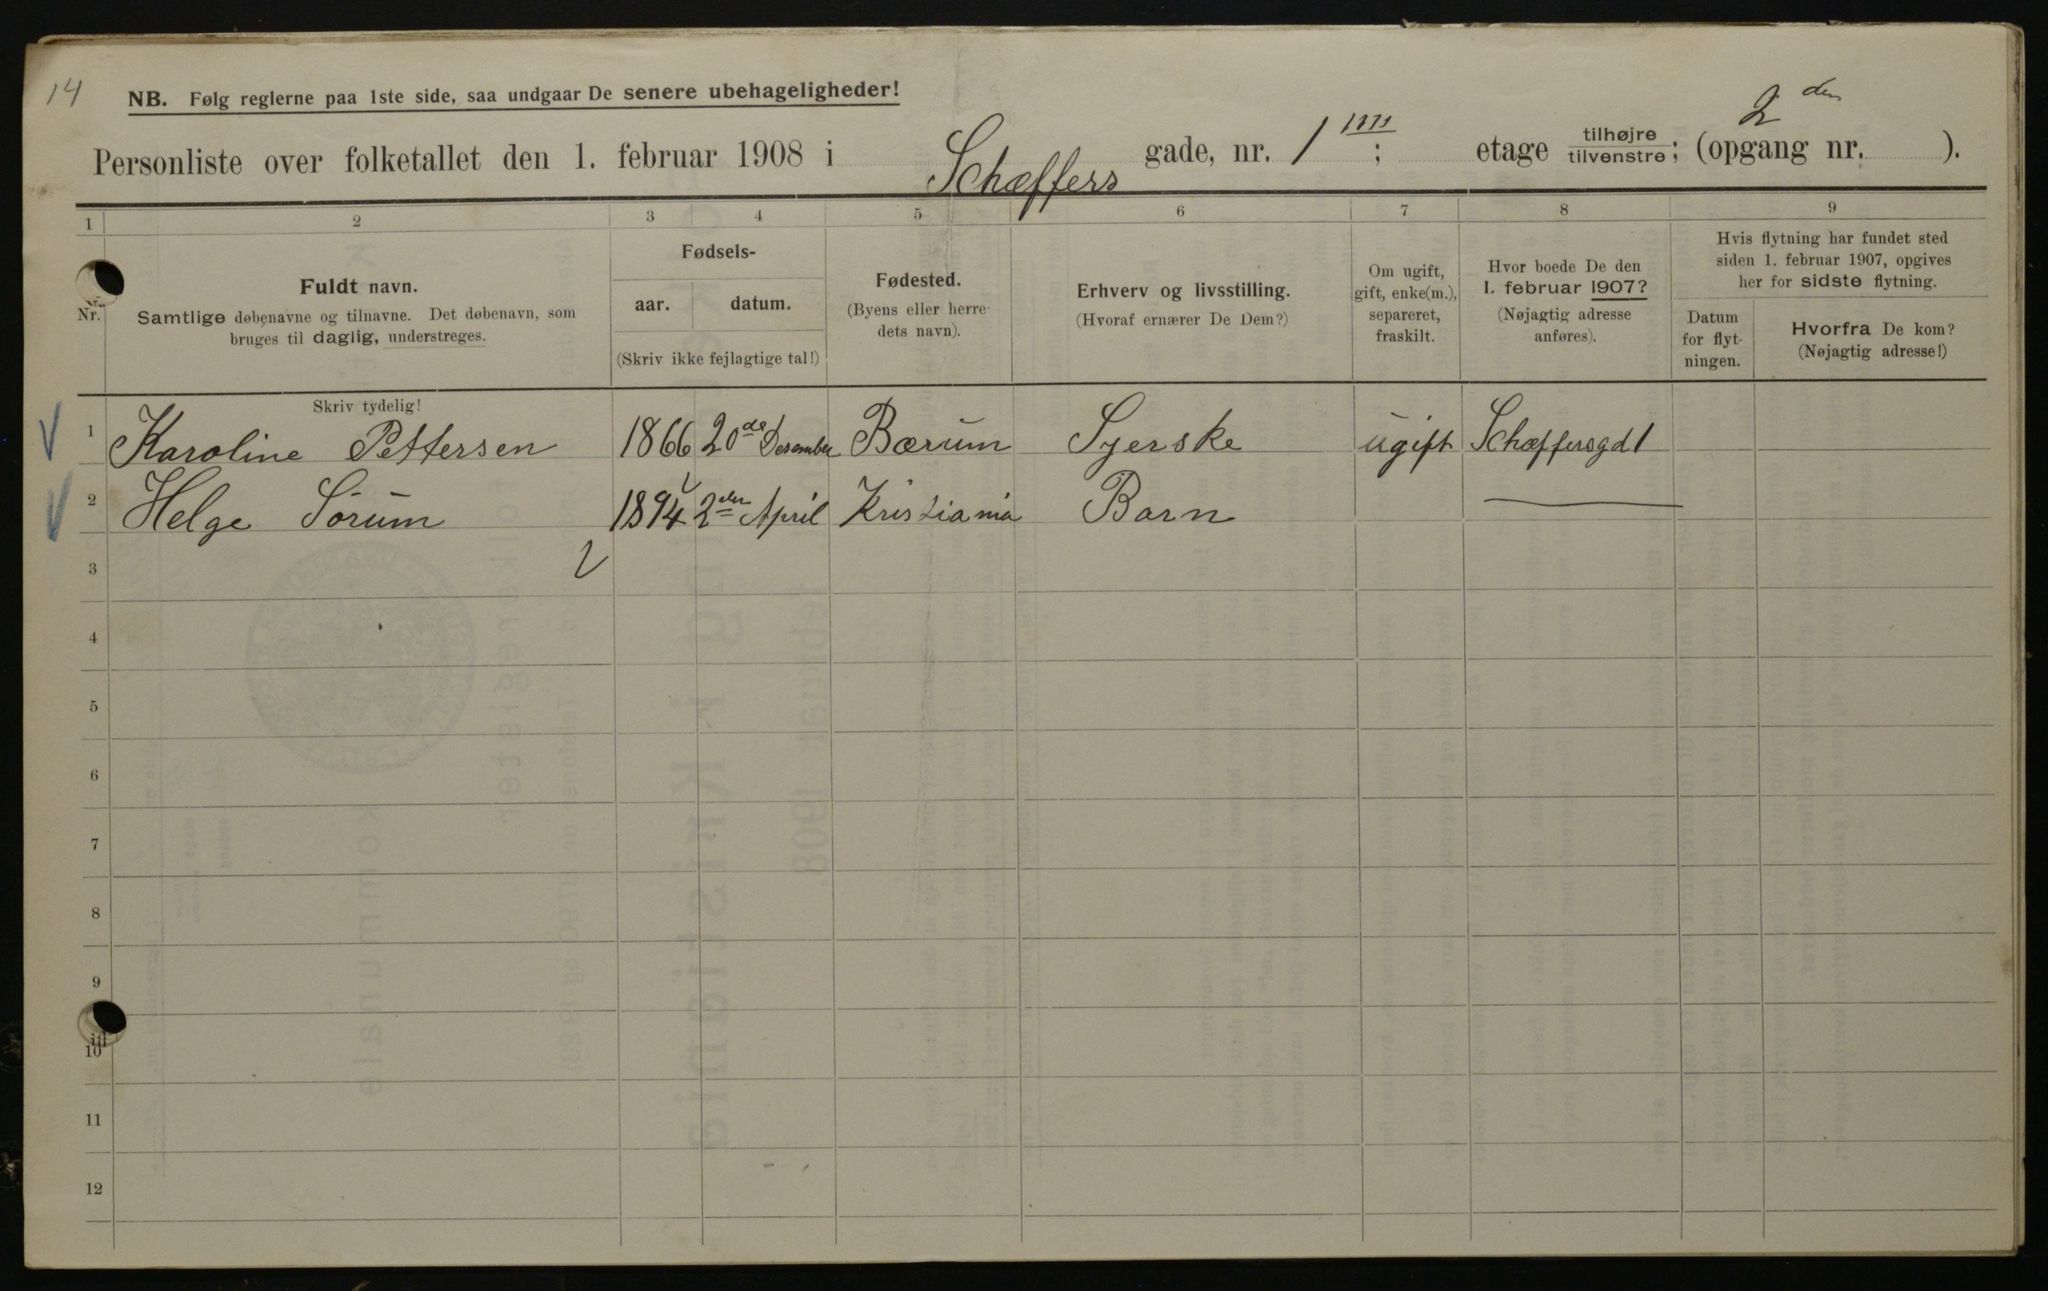 14
NB. Følg reglerne paa 1ste side, saa undgaar De senere ubehageligheder!
Personliste over folketallet den 1. februar 1908 i Schæffers gade, nr. 1 ; etage tilhøjre tilvenstre; (opgang nr. 2den ).
1 2 3 4 5 6 7 8 9
Nr.
Fuldt navn.
Samtlige døbenavne og tilnavne. Det døbenavn, som
bruges til daglig, understreges.
Fødsels-
aar. datum.
(Skriv ikke fejlagtige tal!)
Fødested.
(Byens eller herre-
dets navn).
Erhverv og livsstilling.
(Hvoraf ernærer De Dem?)
Om ugift,
gift, enke(m.),
separeret,
fraskilt.
Hvor boede De den
1. februar 1907?
(Nøjagtig adresse
anføres).
Hvis flytning har fundet sted
siden 1. februar 1907, opgives
her for sidste flytning.
Datum
for flyt-
ningen.
Hvorfra De kom?
(Nøjagtig adresse!)
Skriv tydelig!
1 Karoline Pettersen 1866 20de Desember Bærum Syerske ugift Schæffersgd 1
2 Helge Sörum 1894 2den April Kristiania Barn
3
4
5
6
7
8
9
10
11
12